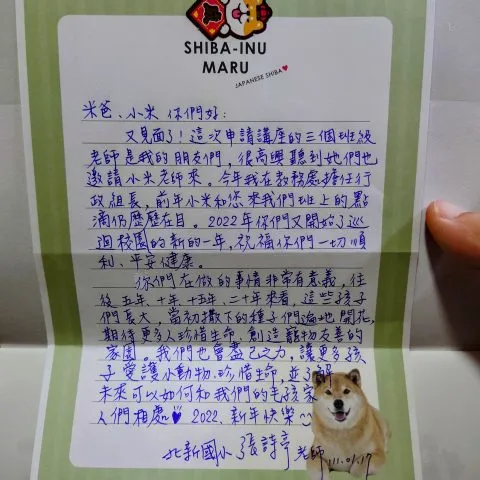 SHIBA-INU
MARU
JAPANESE SHIBA
米爸、小米 你們好:
又見面了!這次申請講座的三個班級
老師是我的朋友們,很高興聽到她們也
邀請小米老師來。今年我在教務處擔任行
政組長,前年小米和您來我們班上的點
滴仍歷歷在目。2022年你們又開始了巡
迴校園的新的一年,祝福你們一切順
利、平安健康。
你們在做的事情非常有意義,往
後五年、十年、十五年、二十年來看,這些孩子
們長大,當初撒下的種子們遍地開花,
期待更多人珍惜生命、創造寵物友善的
家園。我們也會盡己之力,讓更多孩
子愛護小動物、珍惜生命,並了解
未來可以如何和我們的毛孩家
人們相處♥ 2022、新年快樂
北新國小 張詩亭 老師 111.01.17